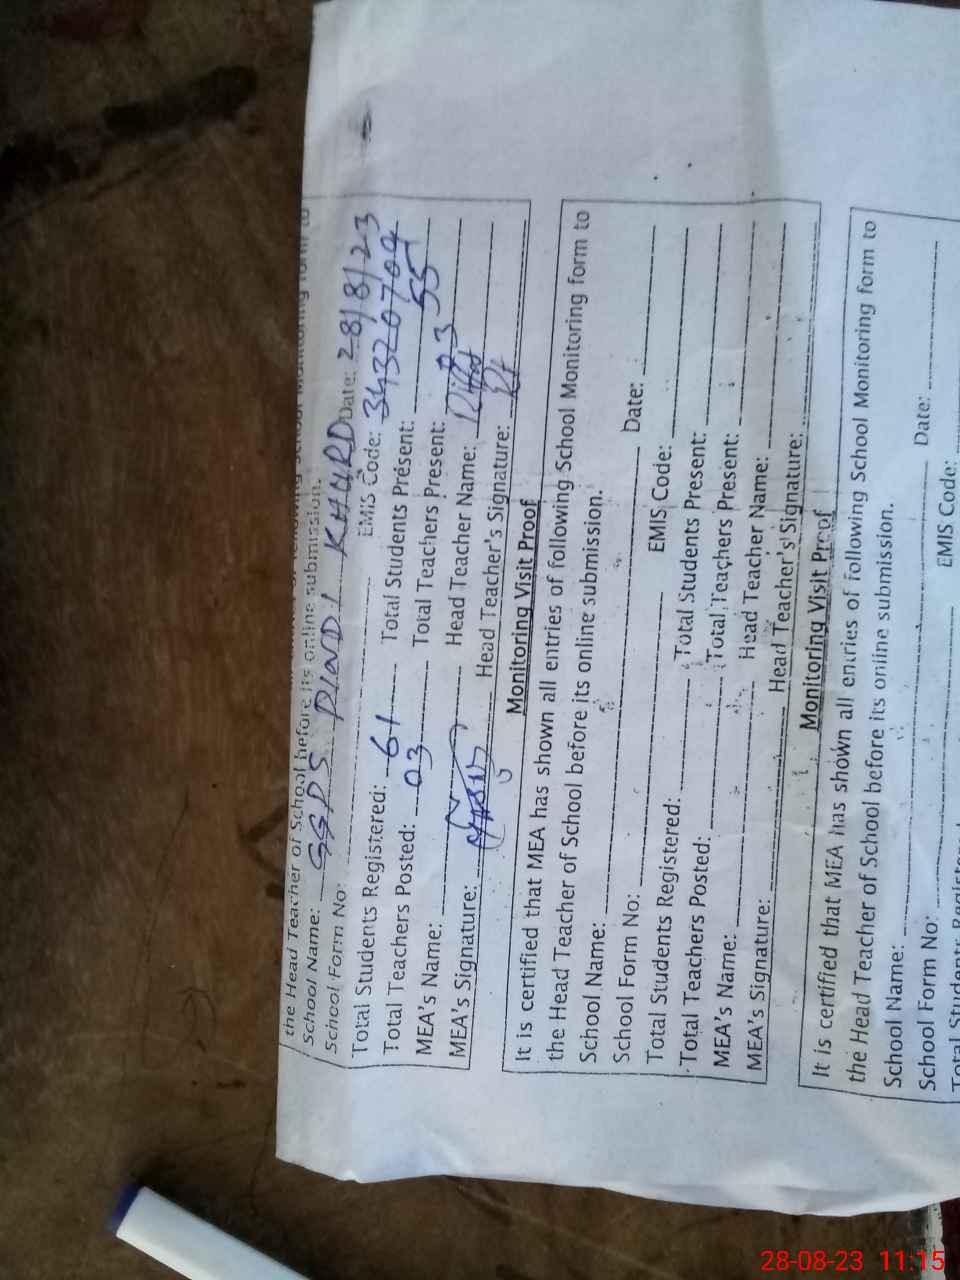 the Head Teacher of School before its online submission.
School Name: GGPS PINDI KHURD Date: 28/8/23
School Form No: EMIS Code: 34320704
Total Students Registered: 61 Total Students Present: 55
Total Teachers Posted: 03 Total Teachers Present: 03
MEA's Name: Head Teacher Name: Riffat
MEA's Signature: Head Teacher's Signature:
Monitoring Visit Proof
It is certified that MEA has shown all entries of following School Monitoring form to
the Head Teacher of School before its online submission.
School Name: Date:
School Form No: EMIS Code:
Total Students Registered: Total Students Present:
Total Teachers Posted: Total Teachers Present:
MEA's Name: Head Teacher Name:
MEA's Signature: Head Teacher's Signature:
Monitoring Visit Proof
It is certified that MEA has shown all entries of following School Monitoring form to
the Head Teacher of School before its online submission.
School Name: Date:
School Form No: EMIS Code:
28-08-23 11:15